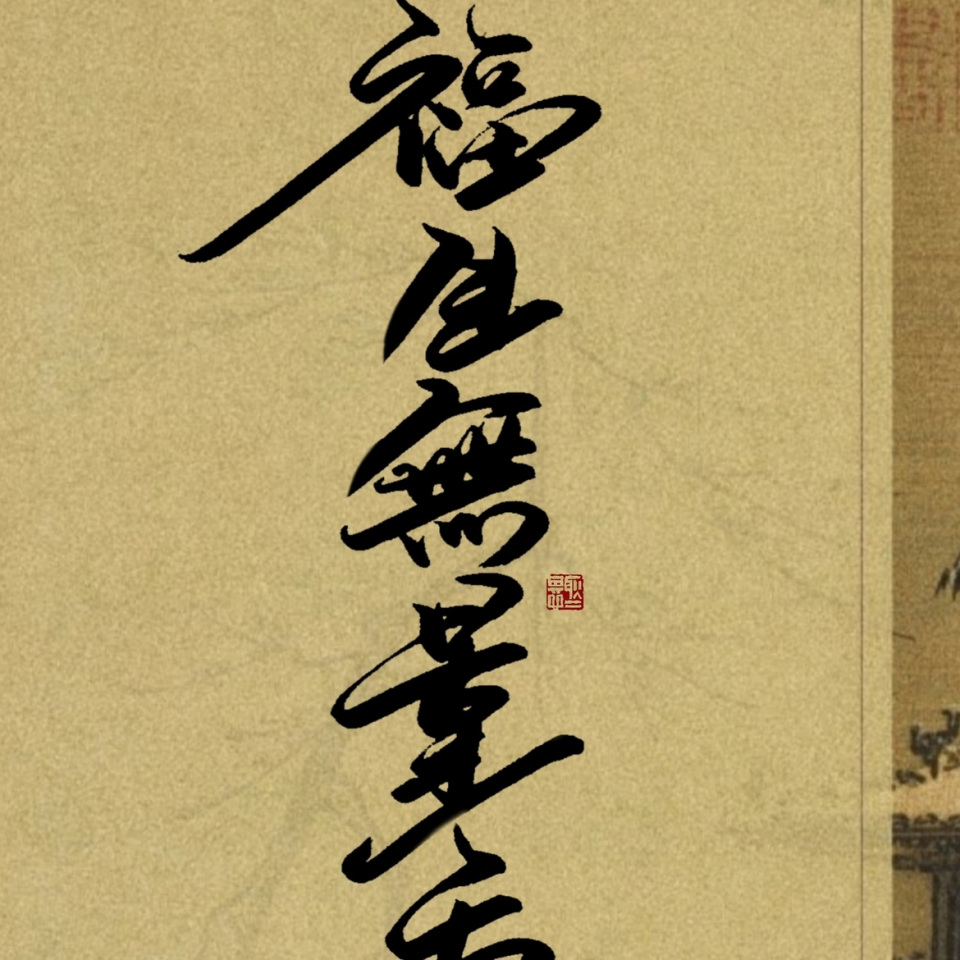 福生無量天